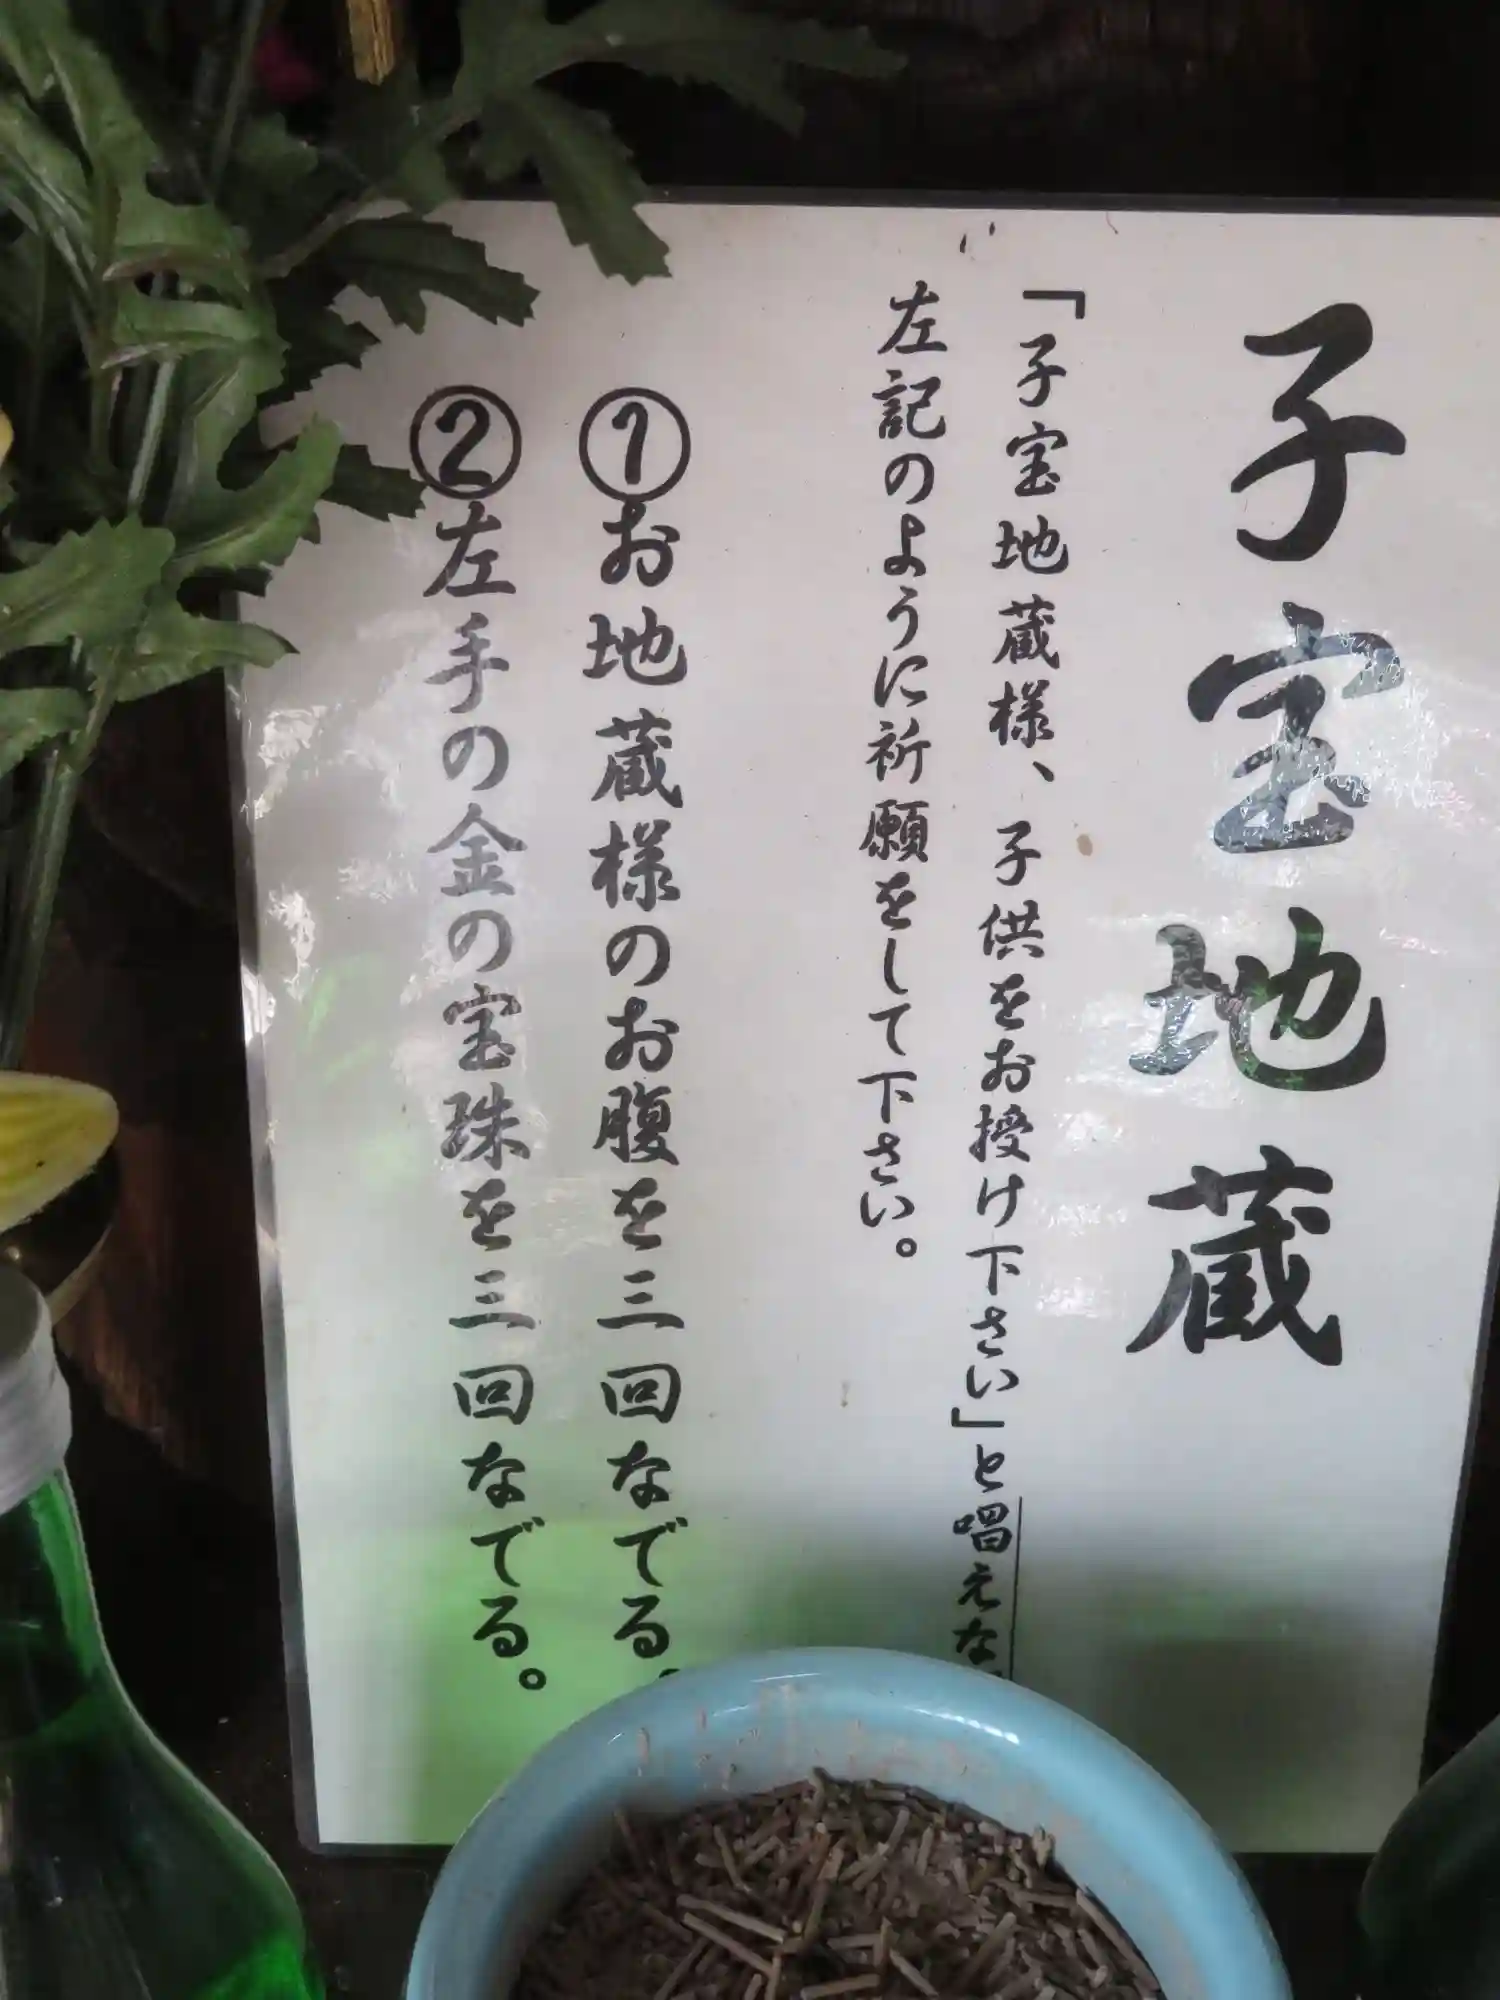 子宝地蔵
「子宝地蔵様、子供をお授け下さい」と唱えな
左記のように祈願をして下さい。
①お地蔵様のお腹を三回なでる。
②左手の金の宝珠を三回なでる。